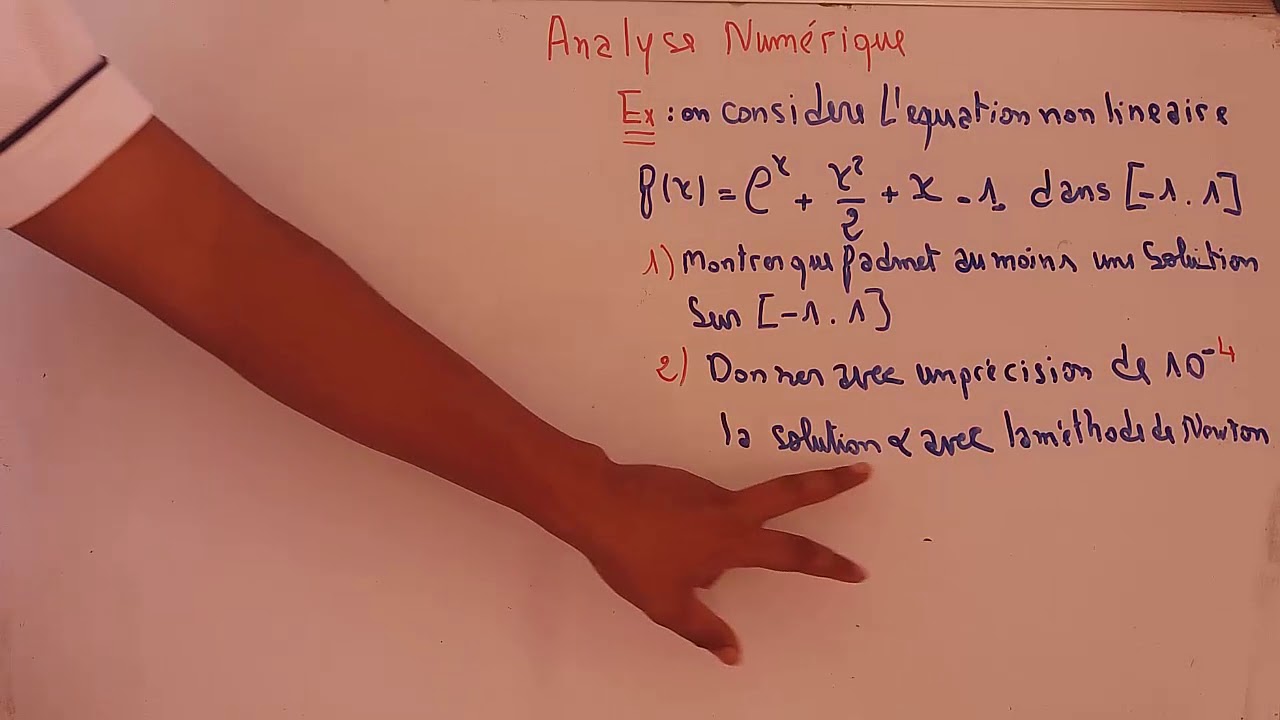 Analyse Numérique
Ex : on considere L'equation non lineaire
f(x) = e^x + x²/2 + x - 1. dans [-1. 1]
1) Montrer que f admet au moins une Solution
Sur [-1. 1]
2) Donner avec un précision de 10^-4
la solution α avec la méthode de Newton